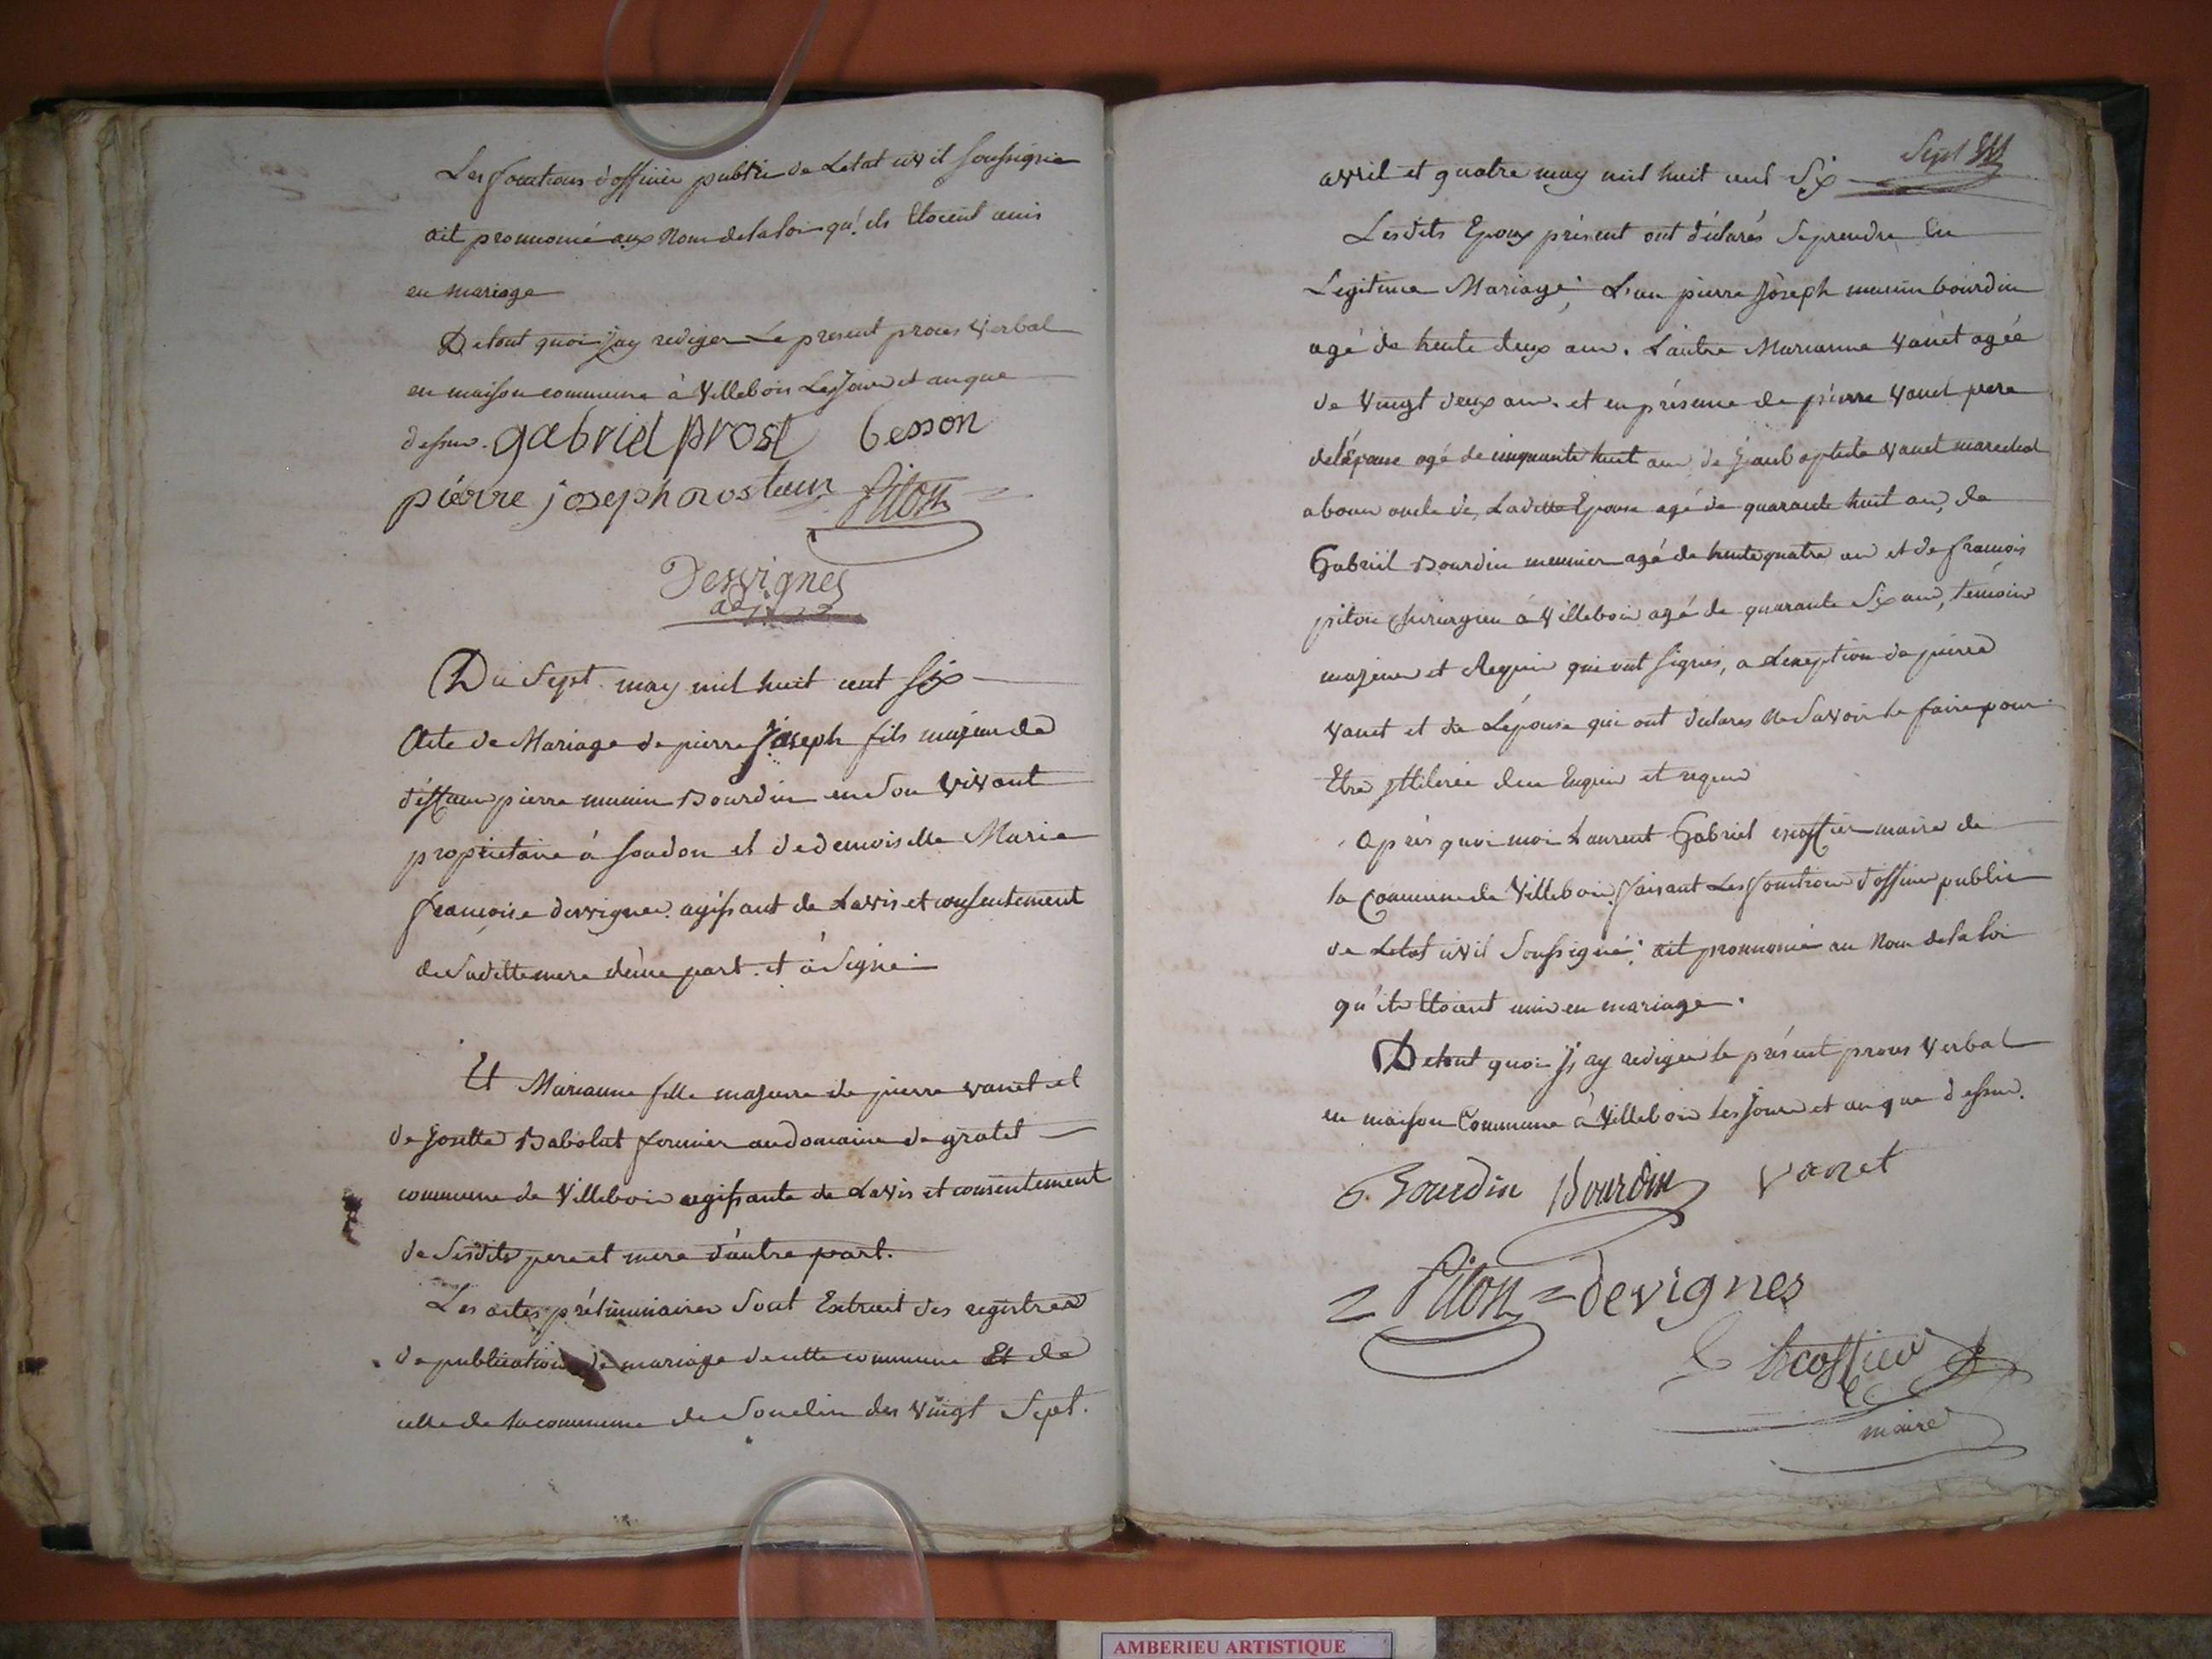 Les fonctions d'officier public de Letat civil soussigné
ait prononcé aux Nom de la loi qu'ils Etoient unis
en mariage
De tout quoi j'ay rediger Le present proces Verbal
en maison commune à Villebois Les Jour et an que
dessus. gabriel prost besson
pierre joseph rostain Piton
Desvignes
adj
Du Sept may mil huit cent Six
Acte de Mariage de pierre Joseph fils majeur de
deffunt pierre munin Bourdin en son vivant
proprietaire à soudon et de demoiselle Marie
francoise desvignes agissant de Lavis et consentement
de Saditte mere d'une part et à Signé
Et Marianne fille majeure de pierre vanet et
de Josette Babolat fermier au domaine de gratet
commune de Villebois agissante de Lavis et consentement
de Sesdits pere et mere d'autre part.
Les actes préliminaires Sont Extrait des registres
de publication de mariage de cette commune Et de
celle de la commune de Souclin des Vingt Sept.
Sept
avril et quatre may mil huit cent Six
Lesdits Epoux présent ont déclarés Se prendre En
Legitime Mariage, L'un pierre Joseph munin bourdin
agé de trente deux ans. L'autre Marianne Vanet agée
de Vingt deux ans. et en présence de pierre Vanet pere
de l'épouse agé de cinquante huit ans de Jean baptiste Vanet marechal
oncle de Laditte Epouse agé de quarante huit ans, de
Gabriel Bourdin meunier agé de trente quatre ans et de francois
piton chirurgien à Villebois agé de quarante Six ans, temoins
majeurs et Requis qui ont signés, a Lexeption de pierre
Vanet et de L'épouse qui ont déclarés Ne Savoir le faire pour
Etre Enquis et requis
Après quoi moi Laurent Gabriel escoffier maire de
la Commune de Villebois faisant Les fonctions d'officier public
de Letat civil Soussigné, ait prononcé au Nom de la loi
qu'ils Etoient unis en mariage.
De tout quoi j'ay redigé le présent proces Verbal
en maison Commune à Villebois les jour et an que dessus.
G. Bourdin Bourdin vanet
Piton devignes
Escoffier
maire
AMBERIEU ARTISTIQUE